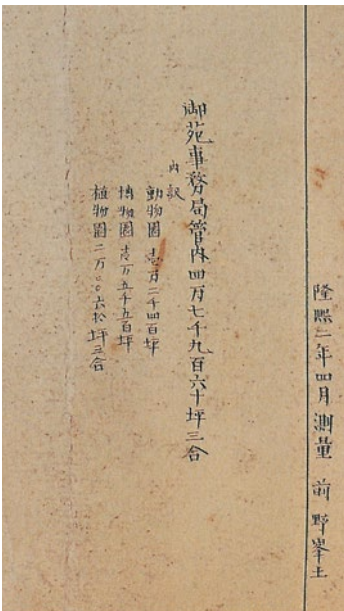 隆熙二年四月測量 前野峯土
御苑事務局管内四万七千九百六十坪三合
内訳
動物園 壱万二千四百坪
博物園 壱万五千五百坪
植物園 二万〇〇六拾坪三合